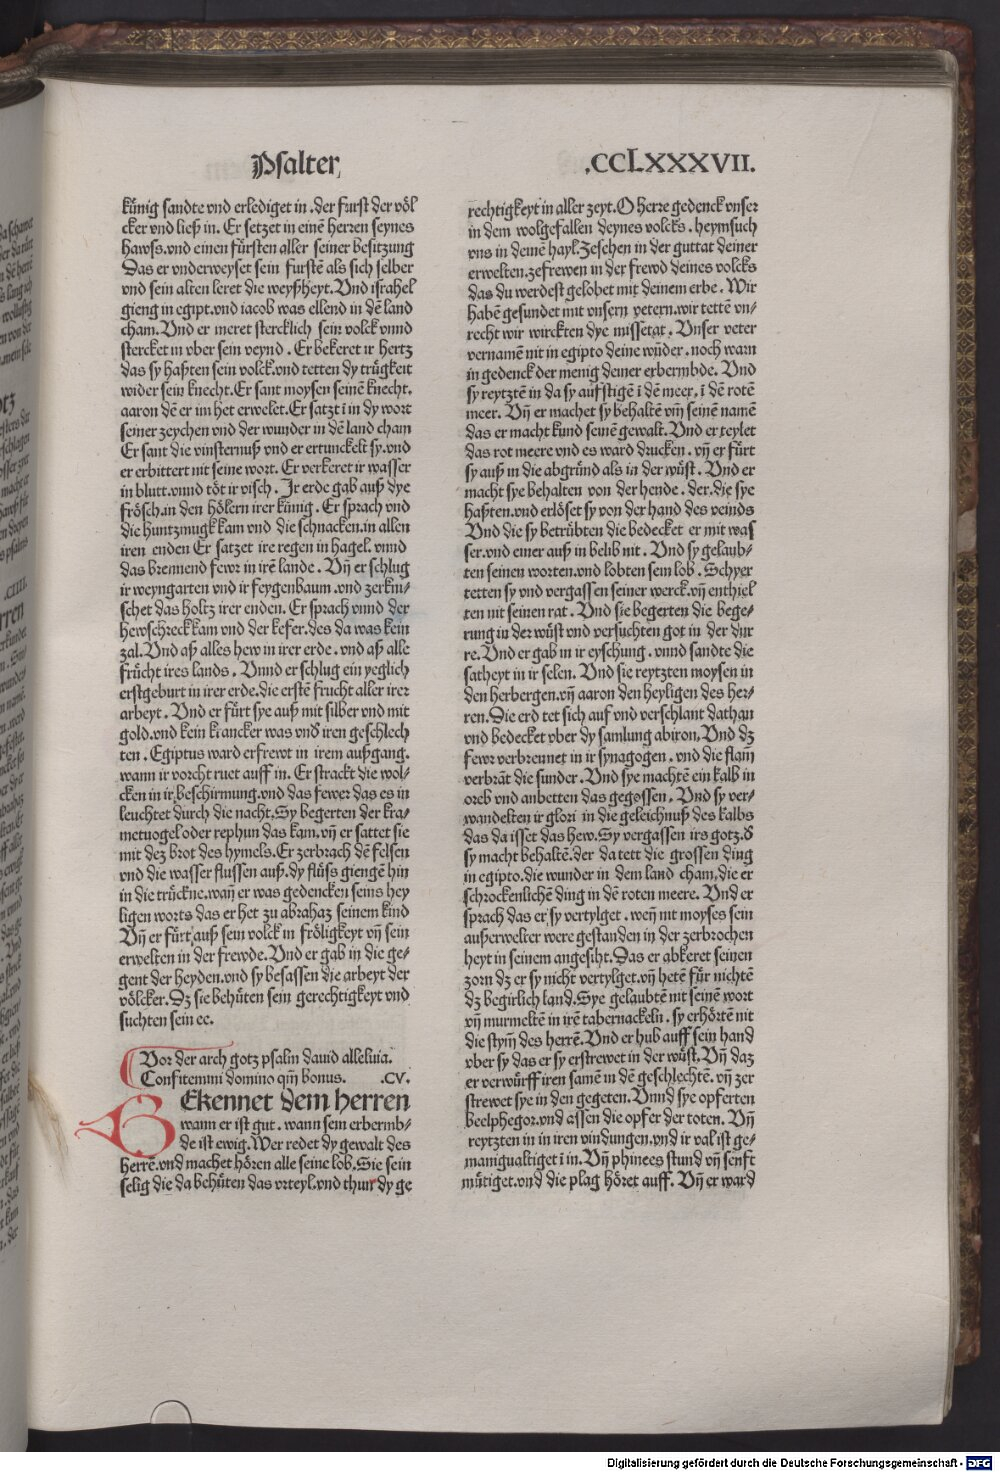 Psalter
.CCLXXXVII.
künig sandte vnd erlediget in .der furst der völ
cker vnd ließ in. Er setzet in einē herren seynes
hawss.vnd einen fürsten aller seiner besitzung
Das er vnderweyset sein furstē als sich selber
vnd sein alten leret die weyßheyt. Vnd israhel
gieng in egipt.vnd iacob was ellend in dē land
cham. Vnd er meret stercklich sein volck vnnd
stercket in vber sein veynd . Er bekeret ir hertz
das sy haßten sein volck.vnd tetten dy trügkeit
wider sein knecht. Er sant moysen seinē knecht.
aaron dē er im het erwelet. Er satzt ī in dy wort
seiner zeychen vnd der wunder in dē land cham
Er sant die vinsternuß vnd er ertunckelt sy.vnd
er erbittert nit seine wort. Er verkeret ir wasser
in blutt.vnnd töt ir visch . Jr erde gab auß dye
frösch.in den hölern irer künig . Er sprach vnd
die huntzmugk kam vnd die schnacken.in allen
iren enden Er satzet ire regen in hagel. vnnd
das brennend fewr in irē lande . Vn̄ er schlug
ir weyngarten vnd ir feygenbaum .vnd zerkni-
schet das holtz irer enden. Er sprach vnnd der
hewschreck kam vnd der kefer.des da was kein
zal. Vnd aß alles hew in irer erde .vnd aß alle
frücht ires lands . Vnnd er schlug ein yeglich
erstgeburt in irer erde.die erstē frucht aller irer
arbeyt . Vnd er fürt sye auß mit silber vnd mit
gold.vnd kein krancker was vnd̄ iren geschlech
ten . Egiptus ward erfrewt in irem außgang.
wann ir vorcht ruet auff in. Er strackt die wol-
cken in ir beschirmung.vnd das fewer das es in
leuchtet durch die nacht. Sy begerten der kra-
metuogel oder rephun das kam. vn̄ er sattet sie
mit dez brot des hymels. Er zerbrach dē felsen
vnd die wasser flussen auß.dy flüss giengē hin
in die trückne.wan̄ er was gedencken seins hey
ligen worts das er het zu abrahaz seinem kind
Vn̄ er fürt auß sein volck in fröligkeyt vn̄ sein
erwelten in der frewde. Vnd er gab in die ge-
gent der heyden.vnd sy besassen die arbeyt der
völcker. Dz sie behüten sein gerechtigkeyt vnd
suchten sein ee.
Vor der arch gotz psalm dauid alleluia.
Confitemini domino qm̄ bonus. .CV.
BEkennet dem herren
wann er ist gut . wann sein erbermb-
de ist ewig. Wer redet dy gewalt des
herrē.vnd machet hören alle seine lob. Sie sein
selig die da behüten das vrteyl.vnd thun dy ge
rechtigkeyt in aller zeyt. O herre gedenck vnser
in dem wolgefallen deynes volcks . heymsuch
vns in deinē hayl. Zesehen in der guttat deiner
erwelten.zefrewen in der frewd deines volcks
das du werdest gelobet mit deinem erbe . Wir
habē gesundet mit vnsern vetern.wir tettē vn-
recht wir wirckten dye missetat . Vnser veter
vernamē nit in egipto deine wūder . noch warn
in gedenck der menig deiner erbermbde. Vnd
sy reytztē in da sy aufstigē ī dē meer, ī dē rotē
meer. Vn̄ er machet sy behaltē vm̄ seinē namē
das er macht kund seinē gewalt. Vnd er teylet
das rot meere vnd es ward drucken . vn̄ er fürt
sy auß in die abgründ als in der wüst . Vnd er
macht sye behalten von der hende . der.die sye
haßten.vnd erlöset sy von der hand des veinds
Vnd die sy betrübten die bedecket er mit was
ser.vnd einer auß in belib nit . Vnd sy gelaub-
ten seinen worten.vnd lobten sein lob . Schyer
tetten sy vnd vergassen seiner werck.vn̄ enthiel
ten nit seinen rat . Vnd sie begerten die bege-
rung in der wüst vnd versuchten got in der dür
re. Vnd er gab in ir eyschung . vnnd sandte die
satheyt in ir selen. Vnd sie reytzten moysen in
den herbergen.vn̄ aaron den heyligen des her-
ren. Die erd tet sich auf vnd verschlant dathan
vnd bedecket vber dy samlung abiron. Vnd dz
fewr verbrennet in ir synagogen . vnd die flam̄
verbrāt die sunder . Vnd sye machtē ein kalb in
oreb vnd anbetten das gegossen . Vnd sy ver-
wandelten ir glori in die geleichnuß des kalbs
das da isset das hew. Sy vergassen irs gotz.d̄
sy macht behaltē.der da tett die grossen ding
in egipto.die wunder in dem land cham.die er
schrockenlichē ding in dē roten meere. Vnd er
sprach das er sy vertylget . wen̄ nit moyses sein
außerwelter were gestanden in der zerbrochen
heyt in seinem angesiht. Das er abkeret seinen
zorn dz er sy nicht vertylget.vn̄ hetē für nichtē
dz begirlich land. Sye gelaubtē nit seinē wort
vn̄ murmeltē in irē tabernackeln . sy erhörtē nit
die stym̄ des herrē. Vnd er hub auff sein hand
vber sy das er sy erstrewet in der wüst. Vn̄ daz
er verwürff iren samē in dē geschlechtē. vn̄ zer
strewet sye in den gegeten. Vnnd sye opferten
beelphegor.vnd assen die opfer der toten. Vn̄
reytzten in in iren vindungen.vnd ir val ist ge-
manigualtiget ī in. Vn̄ phinees stund vn̄ senft
mütiget.vnd die plag höret auff. Vn̄ er ward
Digitalisierung gefördert durch die Deutsche Forschungsgemeinschaft - DFG